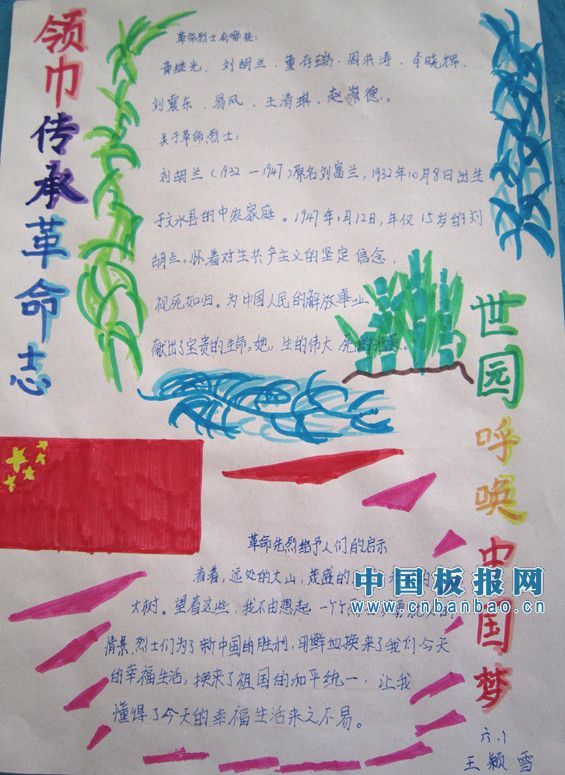 领巾传承革命志
革命烈士有哪些:
黄继光、刘胡兰、董存瑞、周共涛、李晓辉、
刘震东、易风、王清琪、赵崇德。
关于革命烈士:
刘胡兰(1932—1947)原名刘富兰,1932年10月8日出生
于文水县的中农家庭。1947年1月12日,年仅15岁的刘
胡兰,怀着对生共产主义的坚定信念,
视死如归。为中国人民的解放事业
献出了宝贵的生命,她,生的伟大 死的
世园呼唤中国梦
革命先烈给予人们的启示
看着,远处的大山,茂盛的
大树。望着这些,我不由想起一个个
情景,烈士们为了新中国的胜利,用鲜血换来了我们今天
的幸福生活,换来了祖国的和平统一,让我
懂得了今天的幸福生活来之不易。
中国板报网
www.cnbanbao.cn
六.1
王颖雪